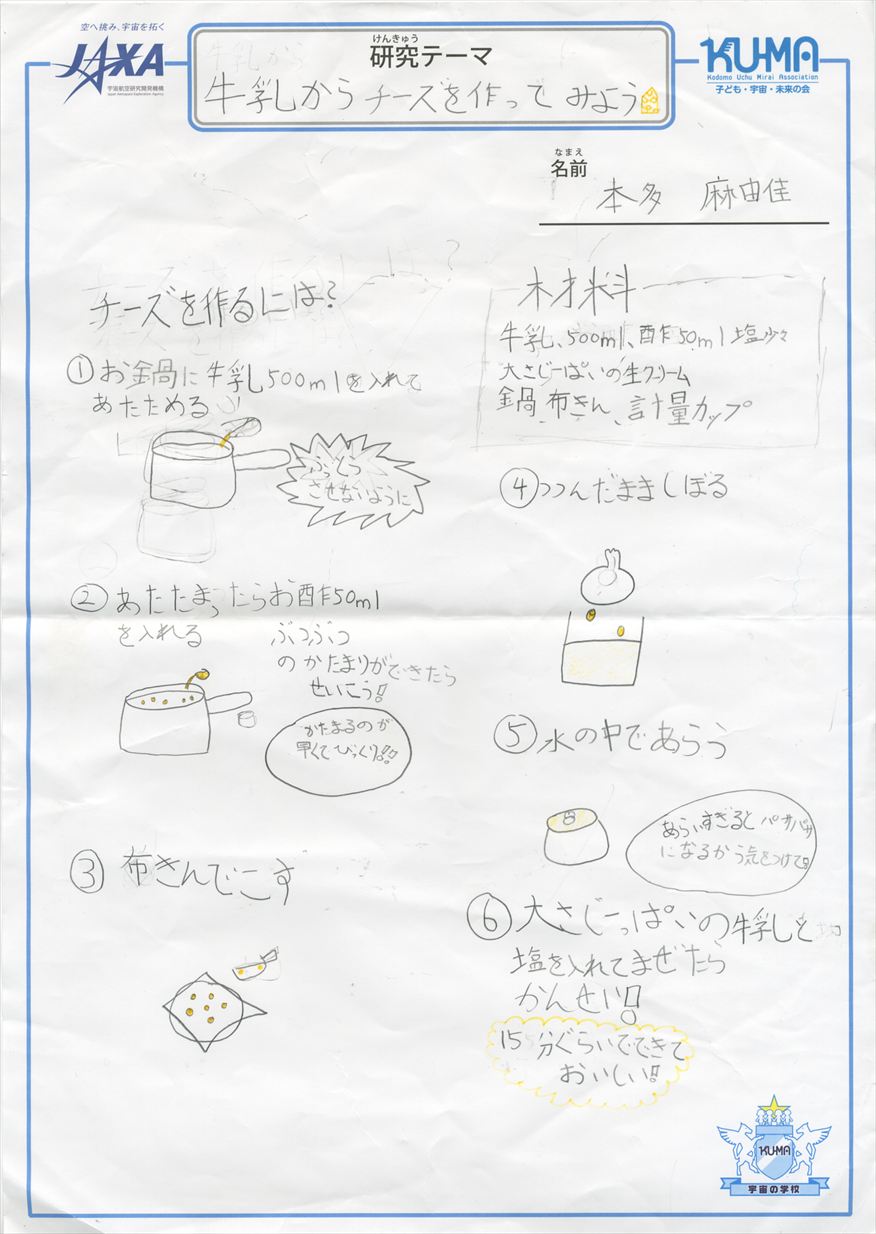 空へ挑み、宇宙を拓く
JAXA
宇宙航空研究開発機構
Japan Aerospace Exploration Agency
けんきゅう
研究テーマ
牛乳から
牛乳からチーズを作ってみよう
KU-MA
Kodomo Uchu Mirai Association
子ども・宇宙・未来の会
なまえ
名前
本多 麻由佳
チーズを作るには?
①お鍋に牛乳500mlを入れて
あたためる
ふっとう
させないように
②あたたまったらお酢50ml
を入れる
ぶつぶつ
のかたまりができたら
せいこう!
かたまるのが
早くてびっくり!!
③布きんでこす
材料
牛乳、500ml、酢50ml塩少々
大さじ一ぱいの生クリーム
鍋、布きん、計量カップ
④つつんだまましぼる
⑤水の中であらう
あらいすぎるとパサパサ
になるから気をつけて!!
⑥大さじ一ぱいの牛乳と
塩を入れてまぜたら
かんせい!
15分ぐらいでできて
おいしい!!
KU-MA
宇宙の学校